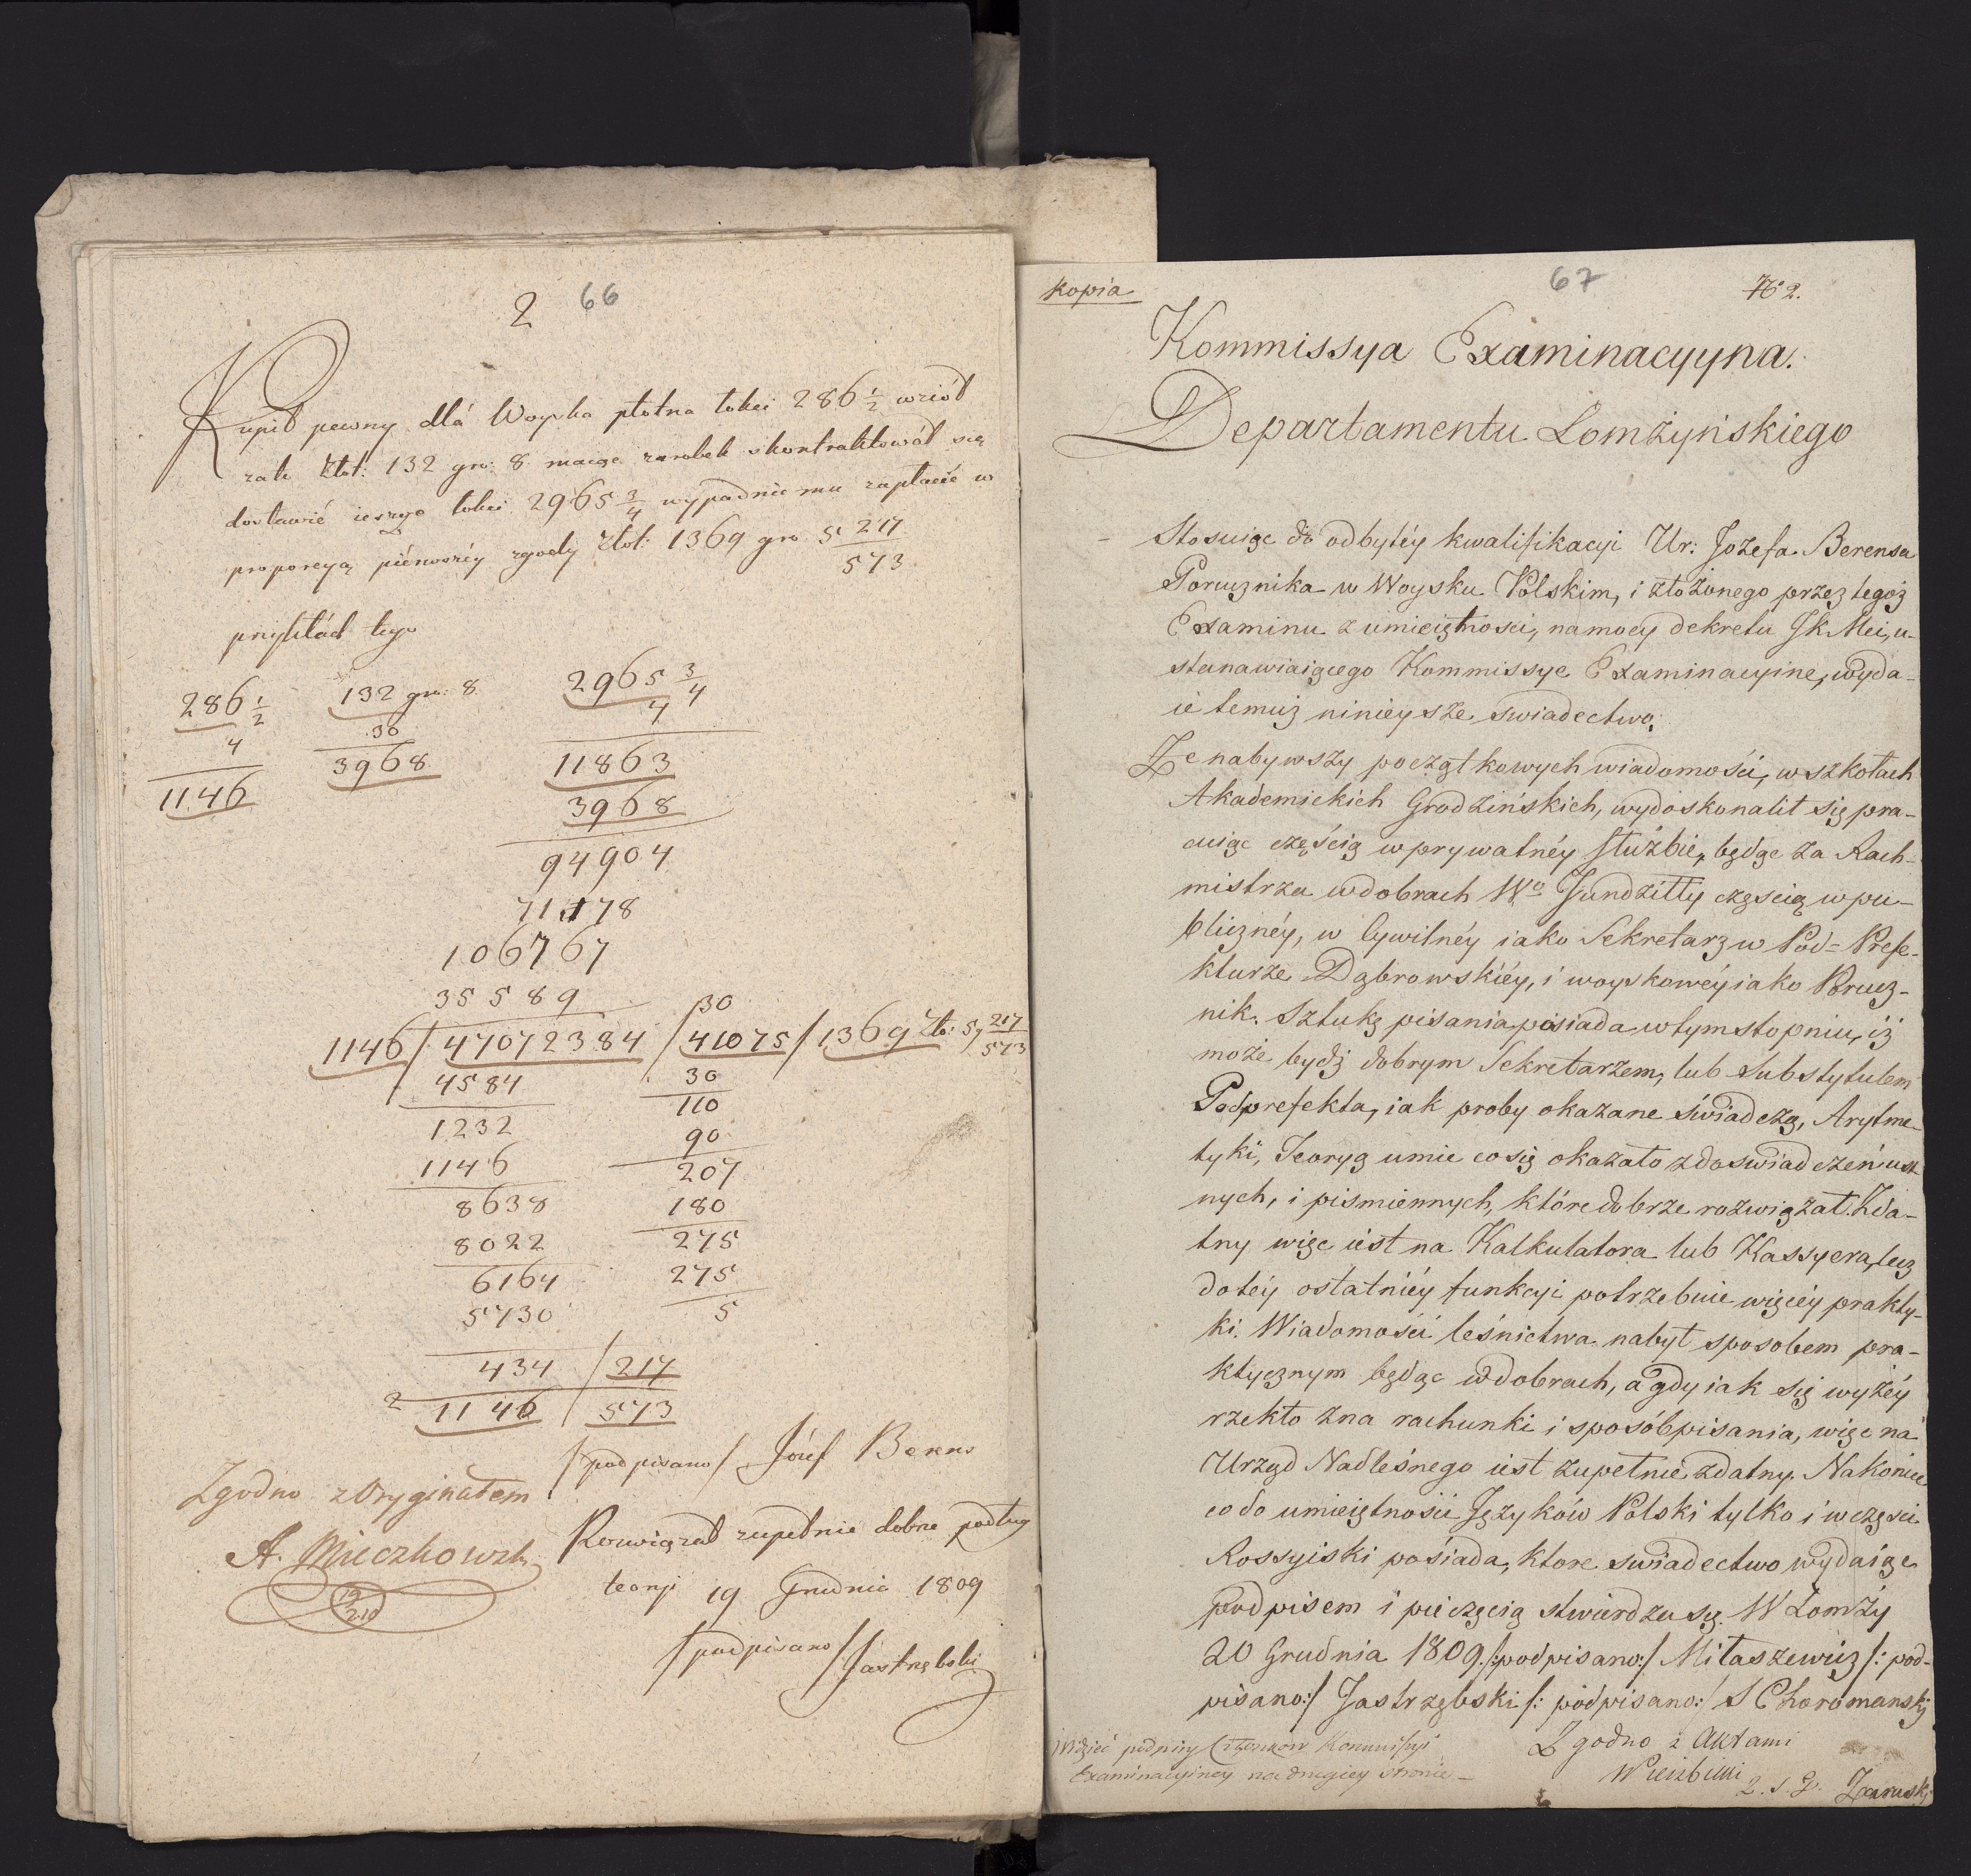 2 66
Kupił pewny dlá Woyska płotna łokci 286 1/2 wziół
zak Złot: 132 gro: 8 maiąc zarobek skontraktował się
dostawić ieszcze łokci 2965 3/4 wypadnie mu zapłacić w
proporcyą piérwszéy zgody Złot: 1369 gro 5 217/573
przykład tego
286 1/2 132 gro: 8. 2965 3/4
4 30 4
1146 3968 11863
3968
94904
71178
106767
35589 30
1146 / 47072384 / 41075 / 1369 Zło: 5 217/573
4584 30
1232 110
1146 90
8638 207
8022 180
6164 275
5730 275
5
434 / 217
2 1146 / 573
/podpisano/ Józef Berens
Zgodno z Oryginałem
Rozwiązał zupełnie dobrze podług
A. Mieczkowski
teoryi 19 Grudnia 1809
19/2.10
/podpisano/ Jastrzębski
kopia 67 No 2.
Kommissya Examinacyyna.
Departamentu Łomżyńskiego
Stosuiąc do odbytéy kwalifikacyi Ur: Jozefa Berensa
Porucznika w Woysku Polskim, i złożonego przez tegoż
Examinu z umieiętnosci, na mocy dekretu JkMci, u-
stanawiaiącego Kommissye Examinacyine, wyda-
ie temuż ninieysze swiadectwo;
Ze nabywszy początkowych wiadomości, w szkołach
Akademickich Grodzińskich, wydoskonalił się pra-
cuiąc częścią w prywatnéy służbie, będąc za Rach-
mistrza w dobrach Wo Jundziłły częscią w pu-
blicznéy, w Cywilnéy iako Sekretarz w Pod=Prefe-
kturze Dąbrowskiéy, i woyskowéy iako Porucz-
nik. Sztukę pisania posiada w tym stopniu, iż
może bydź dobrym Sekretarzem, lub Substytutem
Podprefekta, iak proby okazane świadczą, Arytme-
tyki, Teoryą umie co się okazało z doswiadczeń ust
nych, i pismiennych, które dobrze rozwiązał. Zda-
tny więc iest na Kalkulatora lub Kassyera, lecz
do téy ostatniéy funkcyi potrzebuie więcéy prakty-
ki. Wiadomości leśnictwa nabył sposobem pra-
ktycznym będąc w dobrach, a gdy iak się wyżéy
rzekło zna rachunki i sposób pisania, więc na
Urząd Nadleśnego iest zupełnie zdatny. Nakoniec
co do umieiętnosci Języków Polski tylko i w częsci
Rossyiski posiada, ktore swiadectwo wydaiąc
podpisem i pieczęcią stwierdza się. W Łomży
20 Grudnia 1809./:podpisano:/ Miłaszewicz /: pod-
pisano:/ Jastrzębski /: podpisano:/ S Choromanski
Widzieć podpisy Członków Kommissyi
Examinacyiney na drugiey stronie
Zgodno z Aktami
Wierzbicki
Z. S. G. Zaruski